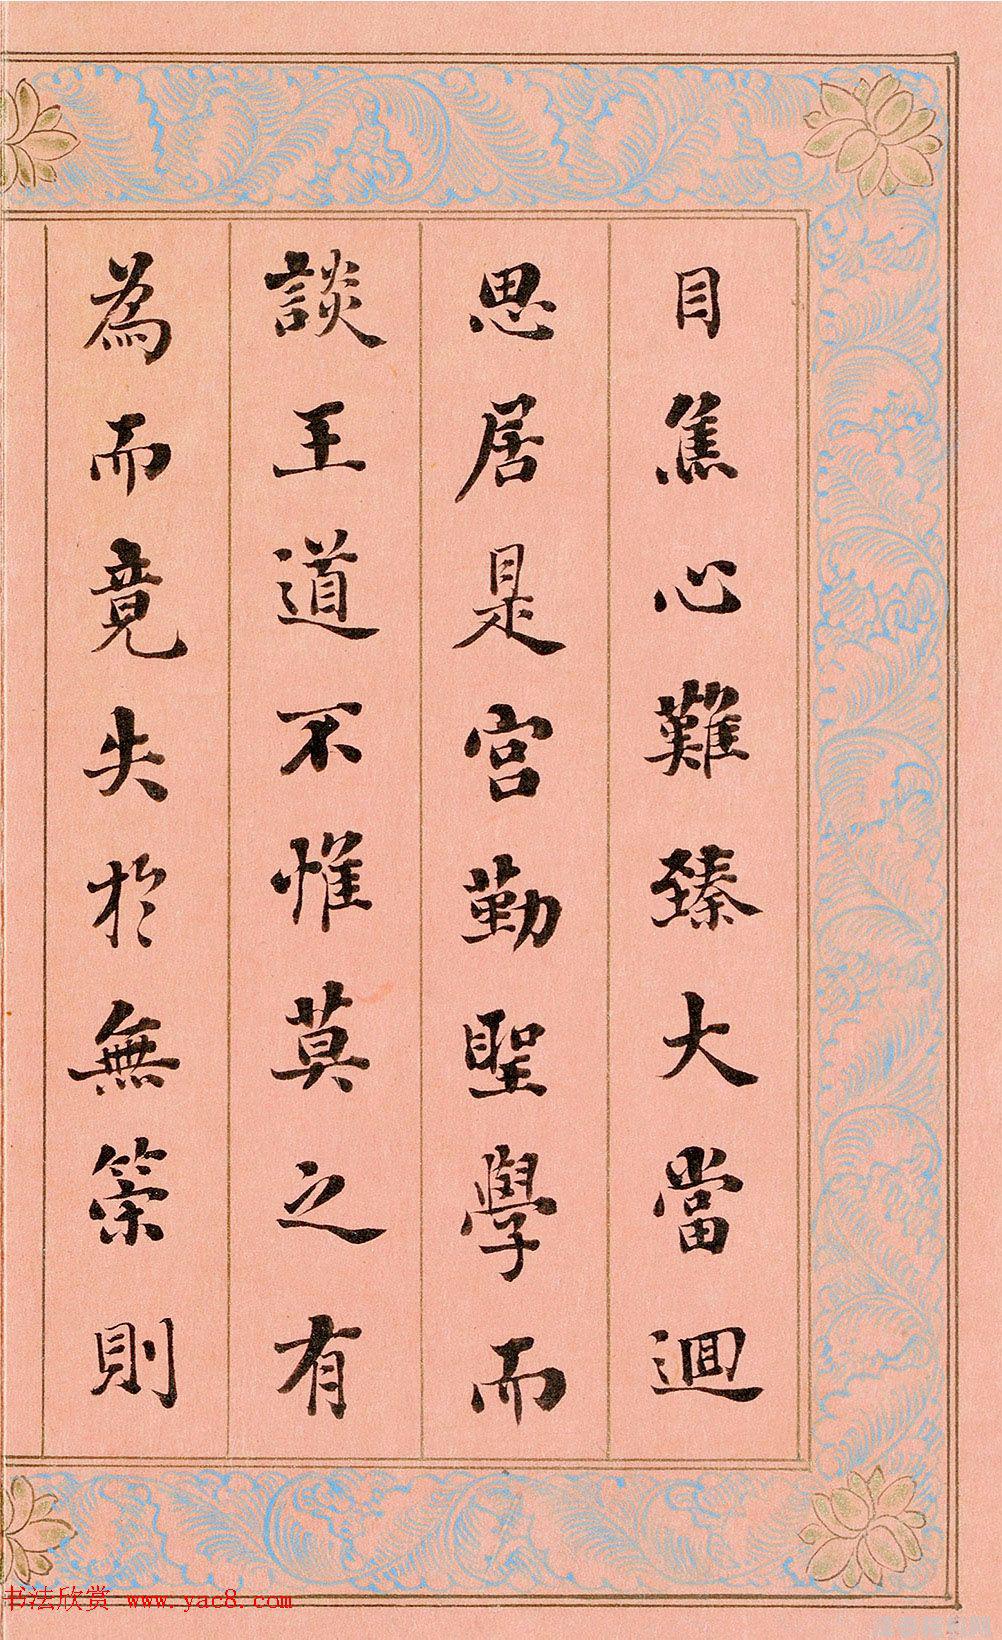 目焦心難臻大當迴
思居是宮勤聖學而
談王道不惟莫之有
為而竟失於無策則
书法欣赏 www.yac8.com